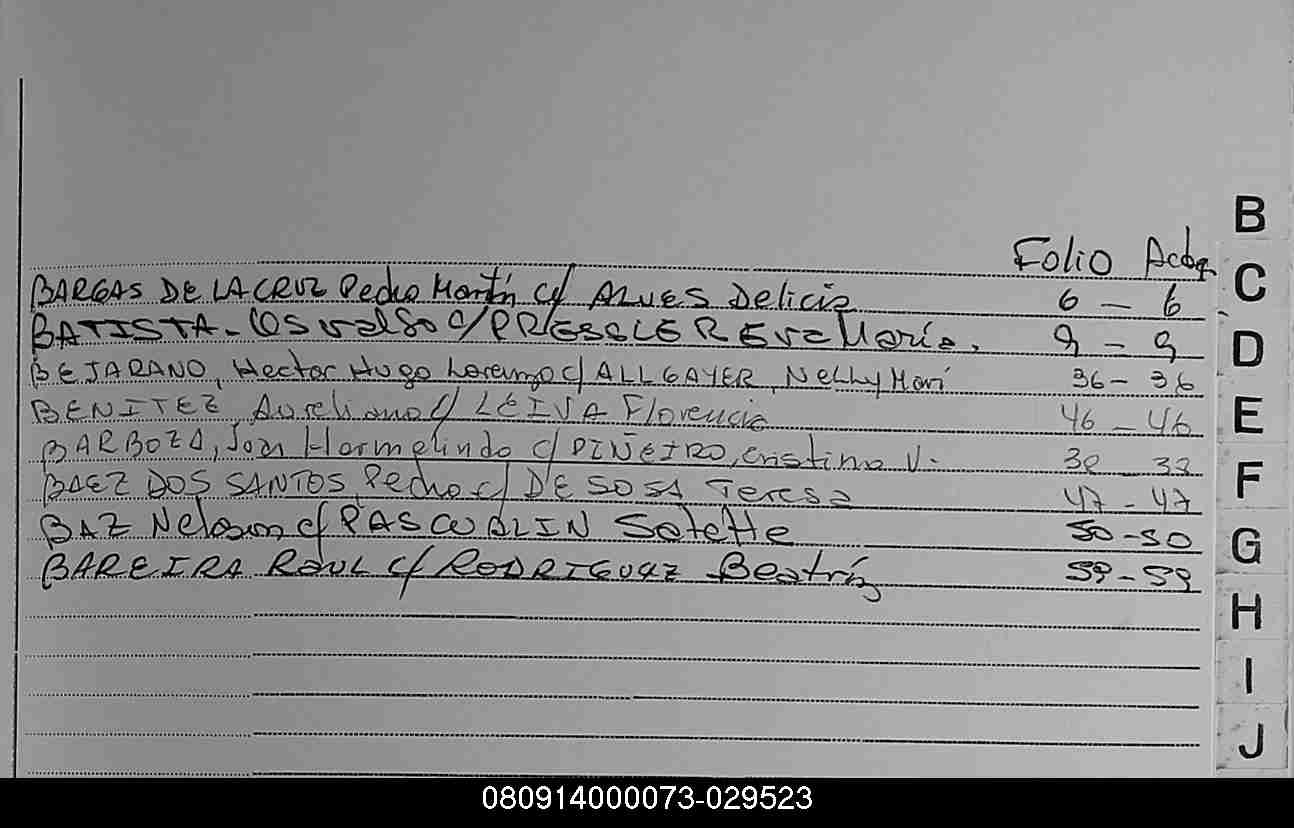 B
Folio Acta
C
BARGAS DE LA CRUZ Pedro Martín c/ ALVES Delicia 6 - 6
BATISTA - Osvaldo c/ PRESSLER Eva María. 9 - 9
D
BEJARANO, Hector Hugo Lorenzo c/ ALLGAYER, Nelly Mari 36 - 36
BENITEZ Aureliano c/ LEIVA Florencia 46 - 46
E
BARBOZA, Juan Hormelindo c/ PIÑEIRO, Cristina V. 38 38
BAEZ DOS SANTOS, Pedro c/ DE SOSA Teresa 47 - 47
F
BAZ Nelson c/ PASCUALIN 50 - 50
G
BAREIRA RAUL c/ RODRIGUEZ Beatríz 59 - 59
H
I
J
080914000073-029523